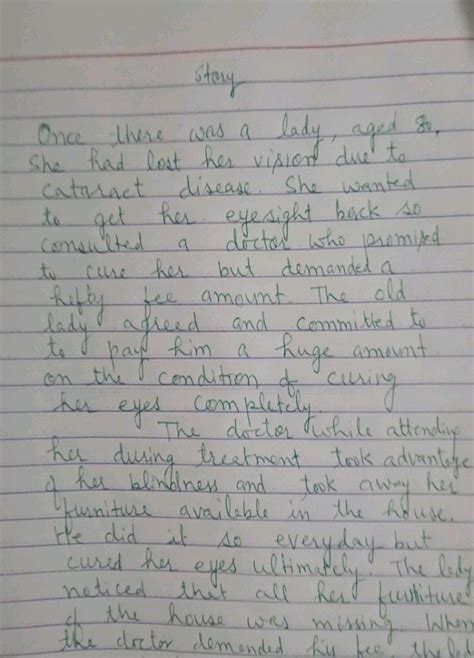 Story
Once there was a lady, aged 80,
She had lost her vision due to
cataract disease. She wanted
to get her eyesight back so
consulted a doctor who promised
to cure her but demanded a
hifty fee amount. The old
lady agreed and committed to
to pay him a huge amount
on the condition of curing
her eyes completely.
The doctor while attending
her during treatment took advantage
of her blindness and took away her
furniture available in the house.
He did it so everyday but
cured her eyes ultimately. The lady
noticed that all her furniture
of the house was missing. When
the doctor demanded his fee, the